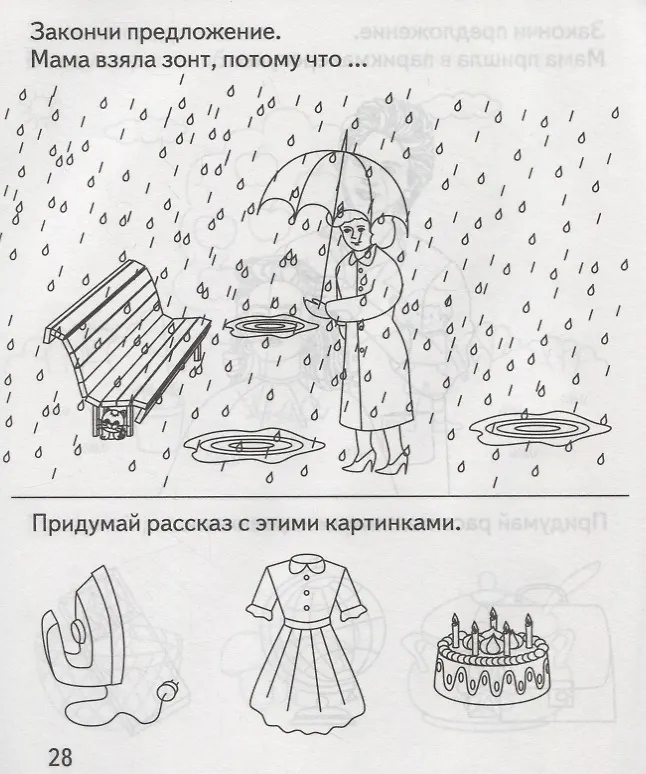 Закончи предложение.
Мама взяла зонт, потому что ...
Придумай рассказ с этими картинками.
28